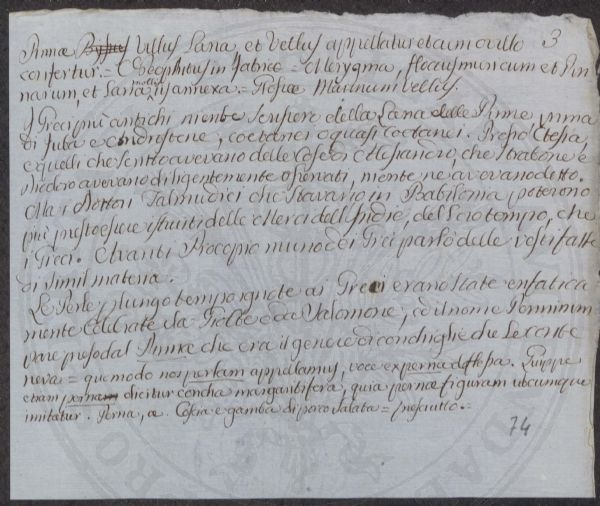 Pinnæ Byssus Villus Lana, et Vellus appellatur et cum ovillo 3
confertur. = Theophilus in
narum, et Lana mollis is annexa = Marinum Vellus.
I Greci più antichi niente scrissero della Lana delle Pinne, prima
di Juba e coetanei o quasi coetanei. Presso Ctesia,
e quelli che scritto avevano delle Cose di Alessandro, che Strabone e
Diodoro avevano diligentemente osservati, niente ne avevano detto.
Ma i Dottori Talmudici che stavano in Babilonia poterono
più presto essere istruiti delle Merci dell' Indie, del loro tempo, che
i Greci. Avanti Procopio niuno dei Greci parlò delle vesti fatte
di simil materia.
Le Perle p lungo tempo ignote ai Greci erano state enfatica
mente celebrate da Giobbe e da Salomone, ed il nome Pinninim
pare preso dal Pinna che era il genere di conchiglie che le conte
neva = quemodo nos pernam appellamus, voce ex perna deflexa. Quippe
etiam pernam dicitur concha margaritifera, quia pernæ figuram ubcumque
imitatur. Perna, æ Coscia e gamba di porco salata = presciutto. =
74